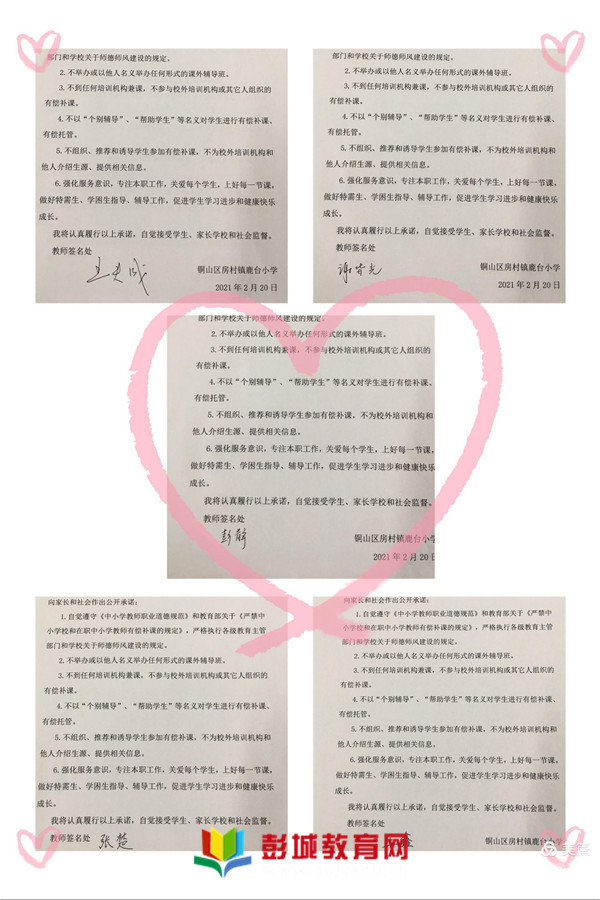 部门和学校关于师德师风建设的规定。
2.不举办或以他人名义举办任何形式的课外辅导班。
3.不到任何培训机构兼课，不参与校外培训机构或其它人组织的
有偿补课。
4.不以“个别辅导”、“帮助学生”等名义对学生进行有偿补课、
有偿托管。
5.不组织、推荐和诱导学生参加有偿补课，不为校外培训机构和
他人介绍生源、提供相关信息。
6.强化服务意识，专注本职工作，关爱每个学生，上好每一节课，
做好特需生、学困生指导、辅导工作，促进学生学习进步和健康快乐
成长。
我将认真履行以上承诺，自觉接受学生、家长学校和社会监督。
教师签名处
铜山区房村镇鹿台小学
2021年2月20日
部门和学校关于师德师风建设的规定。
2.不举办或以他人名义举办任何形式的课外辅导班。
3.不到任何培训机构兼课，不参与校外培训机构或其它人组织的
有偿补课。
4.不以“个别辅导”、“帮助学生”等名义对学生进行有偿补课、
有偿托管。
5.不组织、推荐和诱导学生参加有偿补课，不为校外培训机构和
他人介绍生源、提供相关信息。
6.强化服务意识，专注本职工作，关爱每个学生，上好每一节课，
做好特需生、学困生指导、辅导工作，促进学生学习进步和健康快乐
成长。
我将认真履行以上承诺，自觉接受学生、家长学校和社会监督。
教师签名处
铜山区房村镇鹿台小学
2021年2月20日
部门和学校关于师德师风建设的规定。
2.不举办或以他人名义举办任何形式的课外辅导班。
3.不到任何培训机构兼课，不参与校外培训机构或其它人组织的
有偿补课。
4.不以“个别辅导”、“帮助学生”等名义对学生进行有偿补课、
有偿托管。
5.不组织、推荐和诱导学生参加有偿补课，不为校外培训机构和
他人介绍生源、提供相关信息。
6.强化服务意识，专注本职工作，关爱每个学生，上好每一节课，
做好特需生、学困生指导、辅导工作，促进学生学习进步和健康快乐
成长。
我将认真履行以上承诺，自觉接受学生、家长学校和社会监督。
教师签名处
彭静
铜山区房村镇鹿台小学
2021年2月20日
向家长和社会作出公开承诺：
1.自觉遵守《中小学教师职业道德规范》和教育部关于《严禁中
小学校和在职中小学教师有偿补课的规定》，严格执行各级教育主管
部门和学校关于师德师风建设的规定。
2.不举办或以他人名义举办任何形式的课外辅导班。
3.不到任何培训机构兼课，不参与校外培训机构或其它人组织的
有偿补课。
4.不以“个别辅导”、“帮助学生”等名义对学生进行有偿补课、
有偿托管。
5.不组织、推荐和诱导学生参加有偿补课，不为校外培训机构和
他人介绍生源、提供相关信息。
6.强化服务意识，专注本职工作，关爱每个学生，上好每一节课，
做好特需生、学困生指导、辅导工作，促进学生学习进步和健康快乐
成长。
我将认真履行以上承诺，自觉接受学生、家长学校和社会监督。
教师签名处 张楚
向家长和社会作出公开承诺：
1.自觉遵守《中小学教师职业道德规范》和教育部关于《严禁中
小学校和在职中小学教师有偿补课的规定》，严格执行各级教育主管
部门和学校关于师德师风建设的规定。
2.不举办或以他人名义举办任何形式的课外辅导班。
3.不到任何培训机构兼课，不参与校外培训机构或其它人组织的
有偿补课。
4.不以“个别辅导”、“帮助学生”等名义对学生进行有偿补课、
有偿托管。
5.不组织、推荐和诱导学生参加有偿补课，不为校外培训机构和
他人介绍生源、提供相关信息。
6.强化服务意识，专注本职工作，关爱每个学生，上好每一节课，
做好特需生、学困生指导、辅导工作，促进学生学习进步和健康快乐
成长。
我将认真履行以上承诺，自觉接受学生、家长学校和社会监督。
教师签名处
铜山区房村镇鹿台小学
彭城教育网